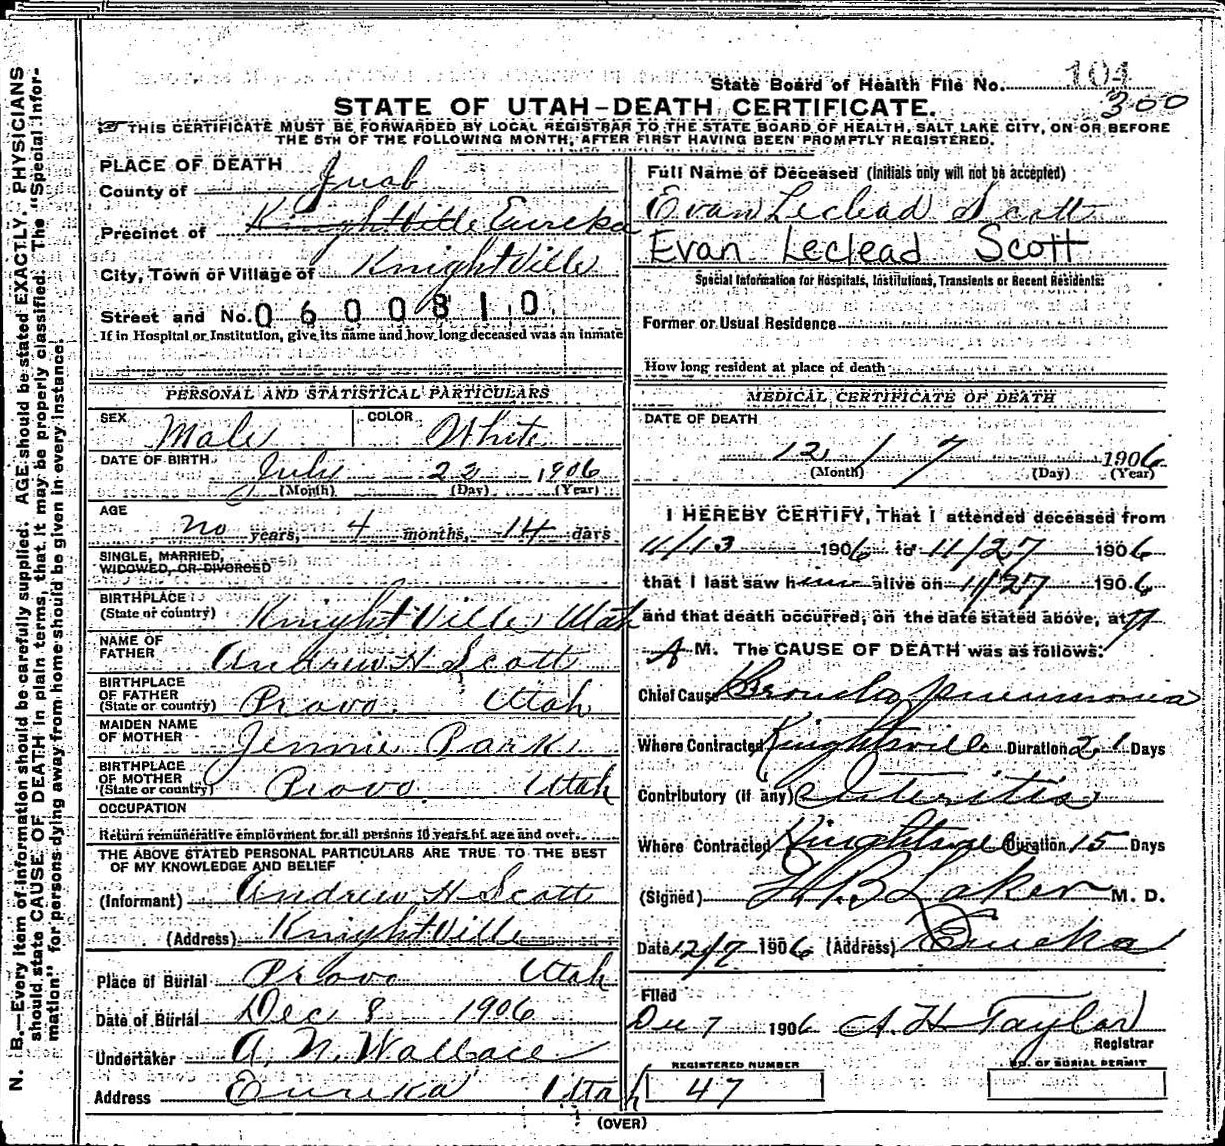 State Board of Health File No. 104
300
STATE OF UTAH—DEATH CERTIFICATE.
THIS CERTIFICATE MUST BE FORWARDED BY LOCAL REGISTRAR TO THE STATE BOARD OF HEALTH, SALT LAKE CITY, ON OR BEFORE
THE 5TH OF THE FOLLOWING MONTH, AFTER FIRST HAVING BEEN PROMPTLY REGISTERED.
PLACE OF DEATH
County of Juab
Precinct of Knightville Eureka
City, Town or Village of KnightVille
Street and No. 0600810
If in Hospital or Institution, give its name and how long deceased was an inmate
PERSONAL AND STATISTICAL PARTICULARS
SEX Male COLOR White
DATE OF BIRTH July 22 1906
(Month) (Day) (Year)
AGE
no years, 4 months, 14 days
SINGLE, MARRIED,
WIDOWED, OR DIVORCED
BIRTHPLACE
(State or country) KnightVille Utah
NAME OF
FATHER Andrew H Scott
BIRTHPLACE
OF FATHER
(State or country) Provo. Utah
MAIDEN NAME
OF MOTHER Jennie Park
BIRTHPLACE
OF MOTHER
(State or country) Provo. Utah
OCCUPATION
Return remunerative employment for all persons 10 years of age and over.
THE ABOVE STATED PERSONAL PARTICULARS ARE TRUE TO THE BEST
OF MY KNOWLEDGE AND BELIEF
(Informant) Andrew H Scott
(Address) KnightVille
Place of Burial Provo Utah
Date of Burial Dec. 8 1906
Undertaker A. N. Wallace
Address Eureka Utah
Full Name of Deceased (Initials only will not be accepted)
Evan Leclead Scott
Evan Leclead Scott
Special Information for Hospitals, Institutions, Transients or Recent Residents:
Former or Usual Residence
How long resident at place of death
MEDICAL CERTIFICATE OF DEATH
DATE OF DEATH
12 / 7 1906
(Month) (Day) (Year)
I HEREBY CERTIFY, That I attended deceased from
11/13 1906 to 11/27 1906
that I last saw him alive on 11/27 1906
and that death occurred, on the date stated above, at
A M. The CAUSE OF DEATH was as follows:
Chief Cause Broncho pneumonia
Where Contracted Knightsville Duration 21 Days
Contributory (if any) Enteritis
Where Contracted Knightsville Duration 15 Days
(Signed) M. D.
Date 12/7 1906 (Address) Eureka
Filed
Dec 7 1906 A. H. Taylor
Registrar
REGISTERED NUMBER
47
NO. OF BURIAL PERMIT
(OVER)
N. B.—Every item of information should be carefully supplied. AGE should be stated EXACTLY. PHYSICIANS
should state CAUSE OF DEATH in plain terms, that it may be properly classified. The "Special Infor-
mation" for persons dying away from home should be given in every instance.